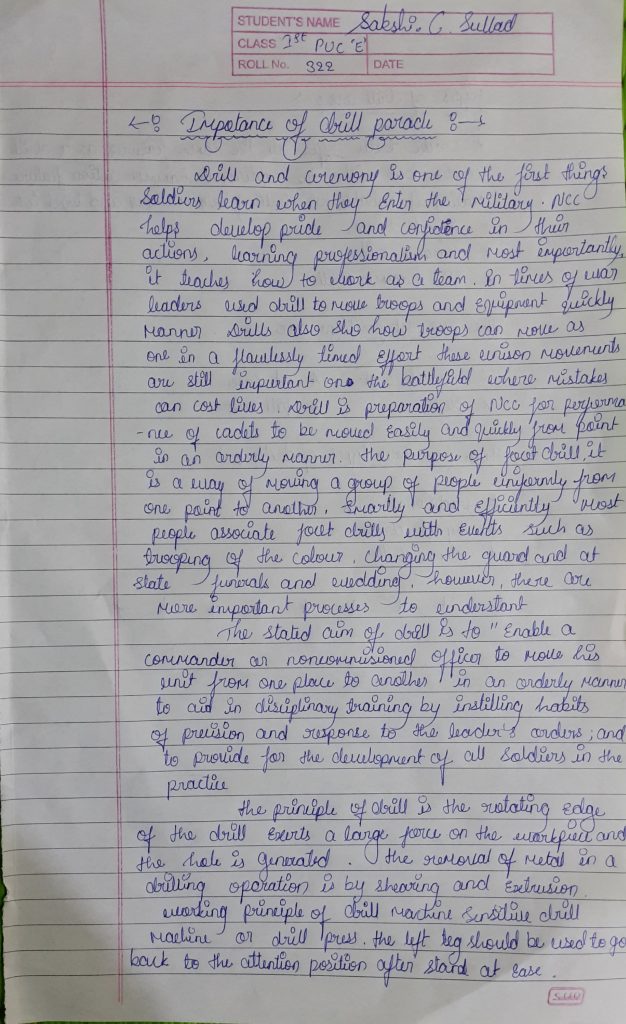 STUDENT'S NAME Sakshi. C. Sullad
CLASS Ist PUC 'E'
ROLL No. 322 DATE
Impotance of drill parade
Drill and ceremony is one of the first things
Soldiers learn when they Enter the Military. NCC
helps develop pride and confidence in their
actions, learning professionalism and Most importantly,
it teaches how to work as a team. In times of war
leaders used drill to Move troops and Equipment quickly
Manner Drills also sho how troops can Move as
one in a flawlessly timed Effort these unison Movements
are still important on the battlefield where mistakes
can cost lives. Drill is preparation of NCC for performa
-nce of cadets to be moved Easily and quickly from point
in an orderly manner. the purpose of foot drill, it
is a way of Moving a group of people uniformly from
one point to another, Smartly and Efficiently Most
people associate foot drills with Events such as
trooping of the colour, changing the guard and at
State funerals and wedding, however, there are
More important processes to understant
The stated aim of drill is to "Enable a
commander or noncommisioned officer to Move his
unit from one place to another in an orderly Manner
to aid in disciplinary training by instilling habits
of precision and response to the leader's orders; and
to provide for the development of all Soldiers in the
practice
the principle of drill is the rotating Edge
of the drill Exerts a large force on the workpiece and
the hole is generated. the removal of Metal in a
drilling operation is by shearing and Extrusion.
working principle of drill Machine Sensitive drill
Machine or drill press. the left leg should be used to go
back to the attention position after stand at Ease.